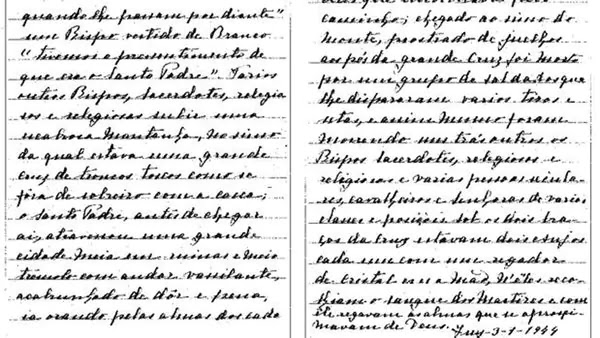 quando lhe passam por diante"
um Bispo vestido de Branco
"tivemos o pressentimento de
que era o Santo Padre". Varios
outros Bispos, Sacerdotes, religio
sos e religiosas subir uma
escabrosa Montanha, no simo
da qual estava uma grande
Cruz de troncos toscos como se
fôra de sobreiro com a casca;
o Santo Padre, antes de chegar
aí, atravessou uma grande
cidade meia em ruinas e meio
trémulo com andar vassilante,
acabrunhado de dôr e pena,
ia orando pelas almas dos cada
caminho; chegado ao simo do
monte, prostrado de juelhos
aos pés da grande Cruz foi morto
por um grupo de soldados que
lhe dispararam varios tiros e
setas, e assim mesmo foram
morrendo uns trás outros os
Bispos Sacerdotes, religiosos e
religiosas e varias pessoas secula-
res, cavalheiros e senhoras de varias
classes e posições. Sob os dois bra-
ços da Cruz estavam dois Anjos
cada um com um regador
de cristal em a mão, N'êles reco-
lhiam o sangue dos Martires e com
êle regavam as almas que se aproxi-
mavam de Deus. Tuy-3-1-1944